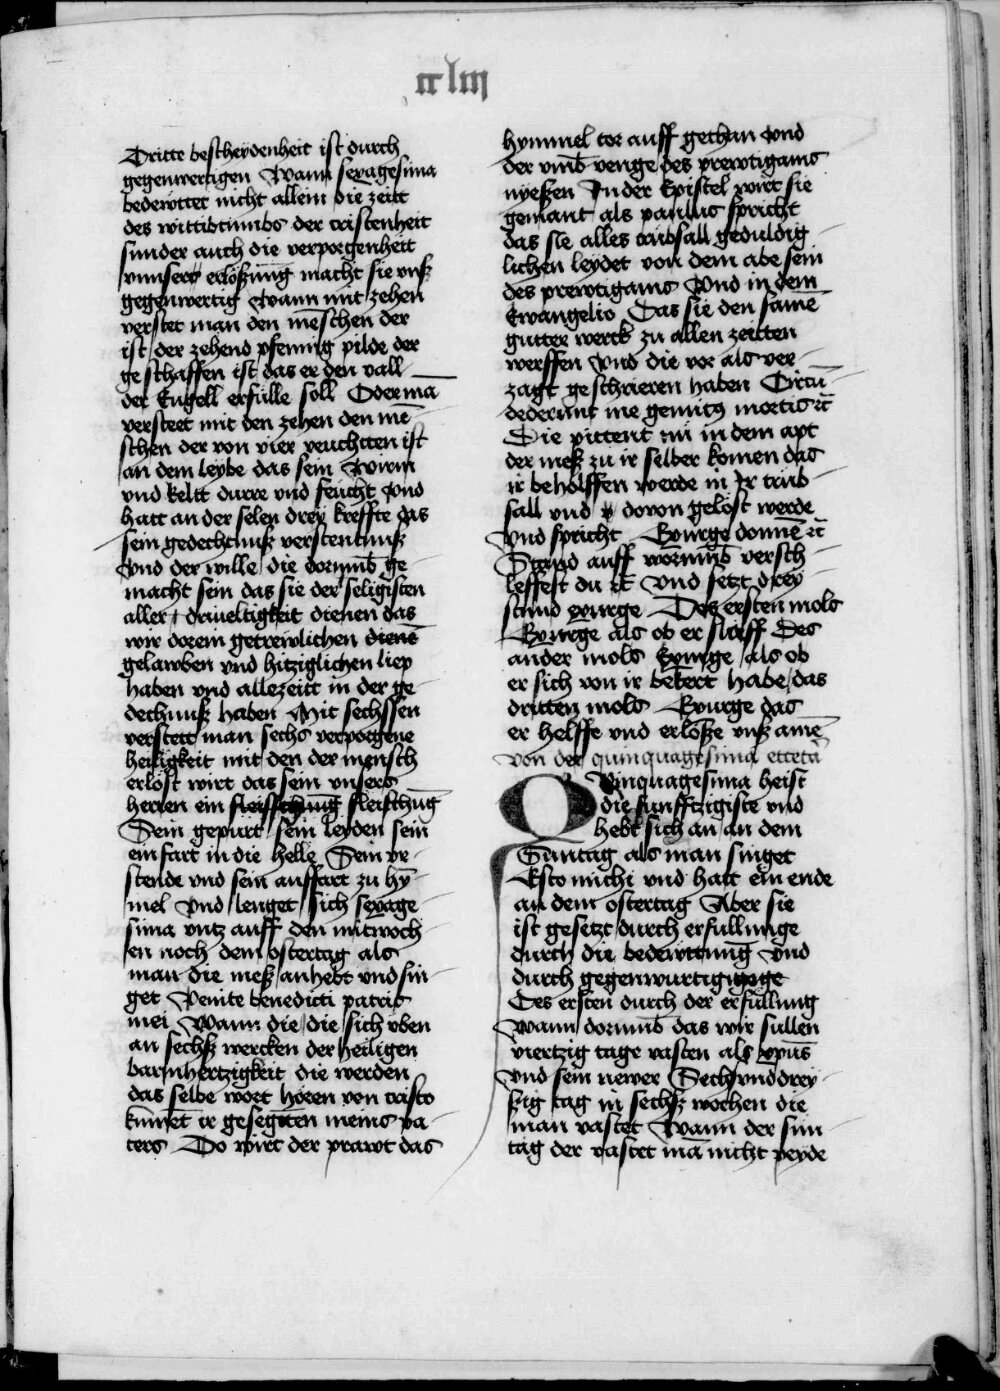 xxliij
Dritte bescheydenheit ist durch
gegenwertigen Wann sexagesima
bedewttet nicht allein die zeitt
des wittibtumbs der cristenheit
sunder auch die verporgenheit
vnnsers erlößung macht sie vnß
gegenwertig Wann mit zehen
verstet man den menschen der
ist der zehend pfennig pilde der
geschaffen ist das er den vall
der Engell erfülle soll Oder mā
versteet mit den zehen den mē
schen der von vier veuchtten ist
an dem leybe das sein Wirm
vnd keltt durre vnd feucht Vnd
hatt an der selen drey kreffte das
sein gedechtnuß verstentnuß
Vnd der wille die dorumb ge
macht sein das sie der seligisten
aller driueltigkeit dienen das
wir dorein getrewlichen dienē
gelawben vnd hitziglichen liep
haben vnd allezeitt in der ge
dechnuß haben Mit sechssen
verstett man sechs verporgene
heiligkeit mit den der mensch
erlöst wirt das sein vnsers
herren ein fleischung fleischūg
Sein gepurt sein leyden sein
ein fart in die helle Sein vr
stende vnd sein auffart zu hȳ
mel Vnd lenget sich sexage
sima vntz auff den mitwoch
en noch dem ostertag als
man die meß anhebt vnd sin
get Venite benedicti patris
mei Wann die die sich vben
an sechß wercken der heiligen
barmhertzigkeit die werden
das selbe wort horen von cristo
kūmet ir gesegēten meins va
ters Do wirt der prawt das
hymmel tor auff gethan Vnd
der vmb venge des prewtigams
nyeßen In der Epistel wirt sie
gemant als paulus spricht
das sie alles trubsall geduldig
lichen leydet von dem abe sein
des prewtigams Vnd in dem
Ewangelio Das sie den samē
gutter werck zu allen zeitten
werffen Vnd die vor als ver
zagt geschrieren haben Circū
dederunt me gemitꝰ mortis ꝛc̄
Die pittent nu in dem apt
der meß zu ir selber komen das
ir beholffen werde in Ir trub
sall vnd dovon gelöst werde
Vnd spricht Exurge domine ꝛc̄
Stand auff worumb versch
leffest du ꝛc̄ Vnd setzt drey
stund exurge Des ersten mols
Exurge als ob er slaff Des
ander mols Exurge als ob
er sich von ir bekert habe das
dritten mols Exurge das
er helffe vnd erlöße vnß amē
von der quinquagesima etcetā
Quinquagesima heist
die funfftzigiste vnd
hebt sich an an dem
Suntag als man singet
Esto michi vnd hatt ein ende
an dem ostertag Aber sie
ist gesetzt durch erfullunge
durch die bedewttung Vnd
durch gegenwurtigigege
Des ersten durch der erfüllung
Wann dorumb das wir sullen
viertzig tage vasten als xpūs
Vnd sein newer Sech vnd drey
ßig tag in sechß wochen die
man vastet Wann der sun
tag der vastet mā nicht peyde